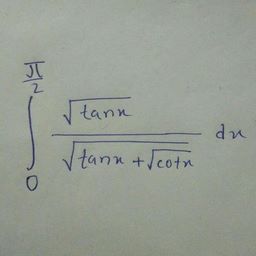 ∫₀^{π/2} \frac{\sqrt{\tan x}}{\sqrt{\tan x + \sqrt{\cot x}}} dx